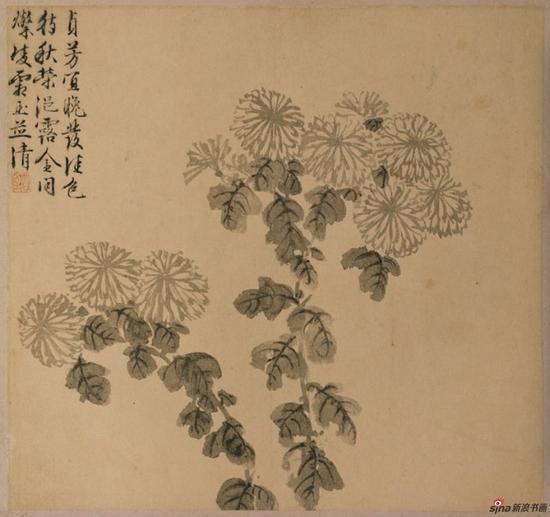 貞芳宜晚發佳色
待秋榮浥露金同
燦凌霜玉並清
sina新浪书画